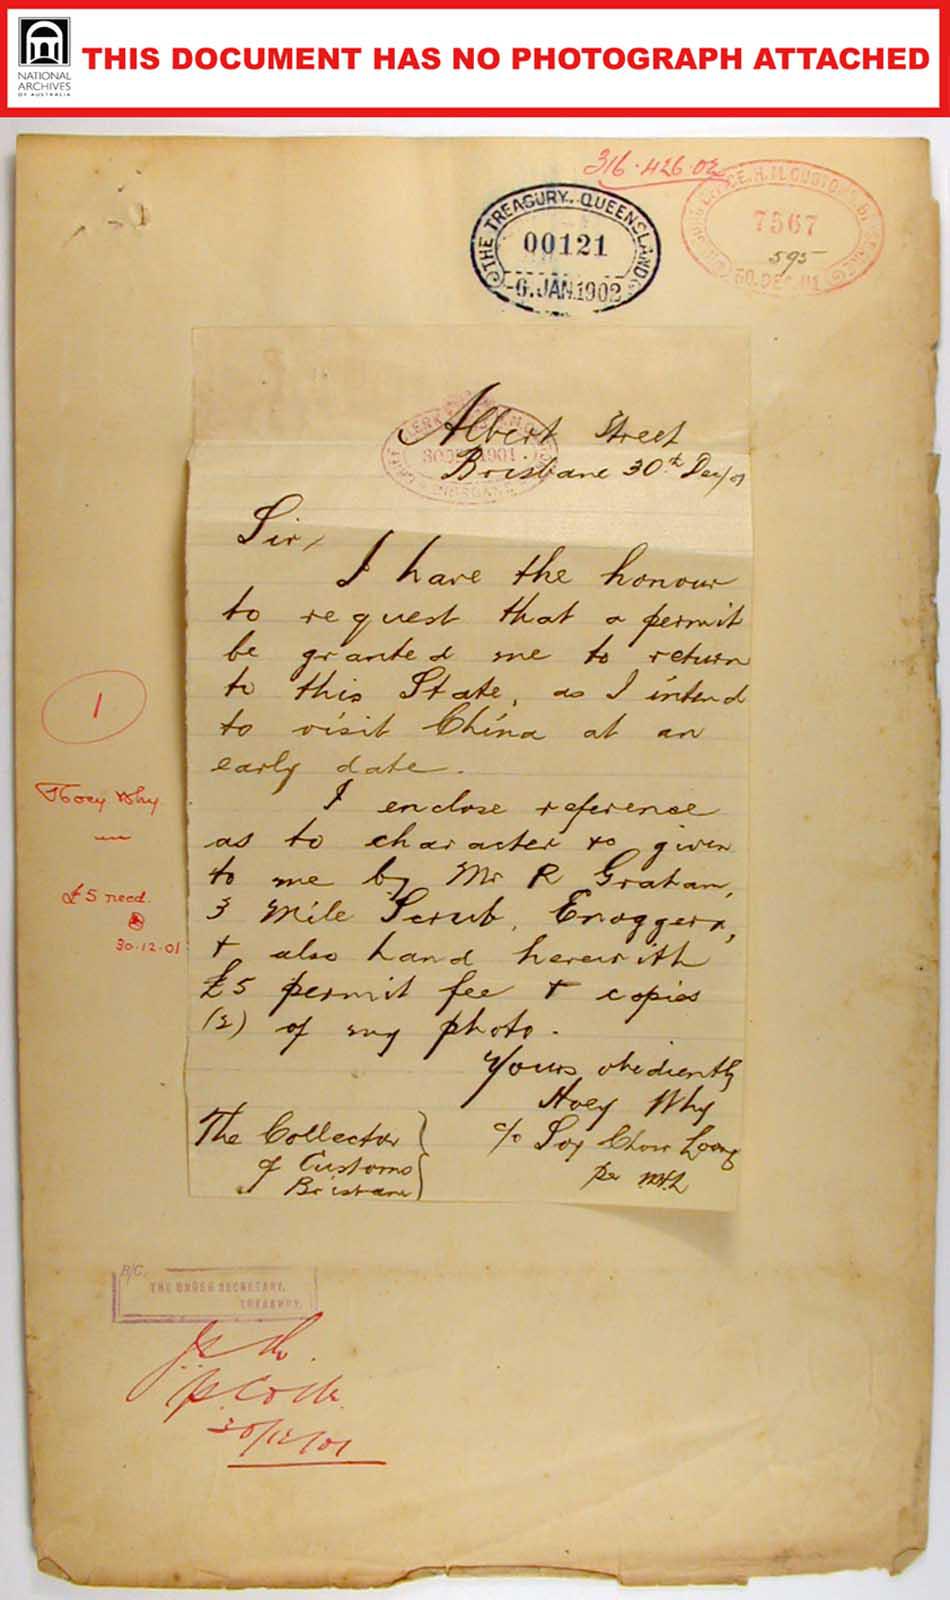 NATIONAL
ARCHIVES
OF AUSTRALIA
THIS DOCUMENT HAS NO PHOTOGRAPH ATTACHED
316.426.02
THE TREASURY. QUEENSLAND
00121
-6.JAN.1902
H.M.CUSTOMS
7567
595
30.DEC.01
Albert Street
Brisbane 30th Dec/01
Sir,
I have the honour
to request that a permit
be granted me to return
to this State, as I intend
to visit China at an
early date.
I enclose reference
as to character &c given
to me by Mr R Graham,
3 Mile Scrub, Enoggera,
+ also hand herewith
£5 permit fee + copies
(2) of my photo.
Yours obediently
Hoey Why
c/o Soy Chow Loong
per
The Collector
of Customs
Brisbane
1
Hoey Why
£5 recd.
30.12.01
B/C.
THE UNDER SECRETARY,
TREASURY.
30/12/01